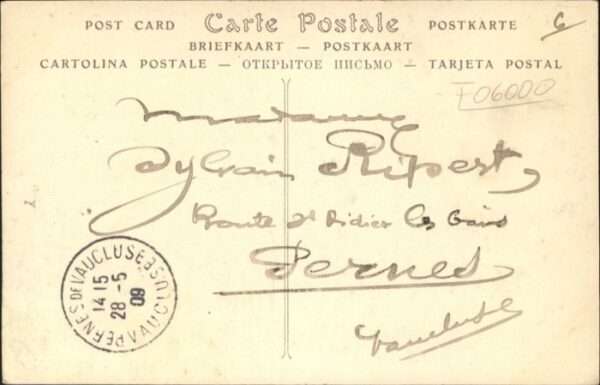 POST CARD Carte Postale POSTKARTE
BRIEFKAART — POSTKAART
CARTOLINA POSTALE — ОТКРЫТОЕ ПИСЬМО — TARJETA POSTAL
6
F06000
Madame
Sylvain Ripert
Route St Didier les Bains
Pernes
Vaucluse
PERNES DE VAUCLUSE
14 15
28 - 5
09
VAUCLUSE